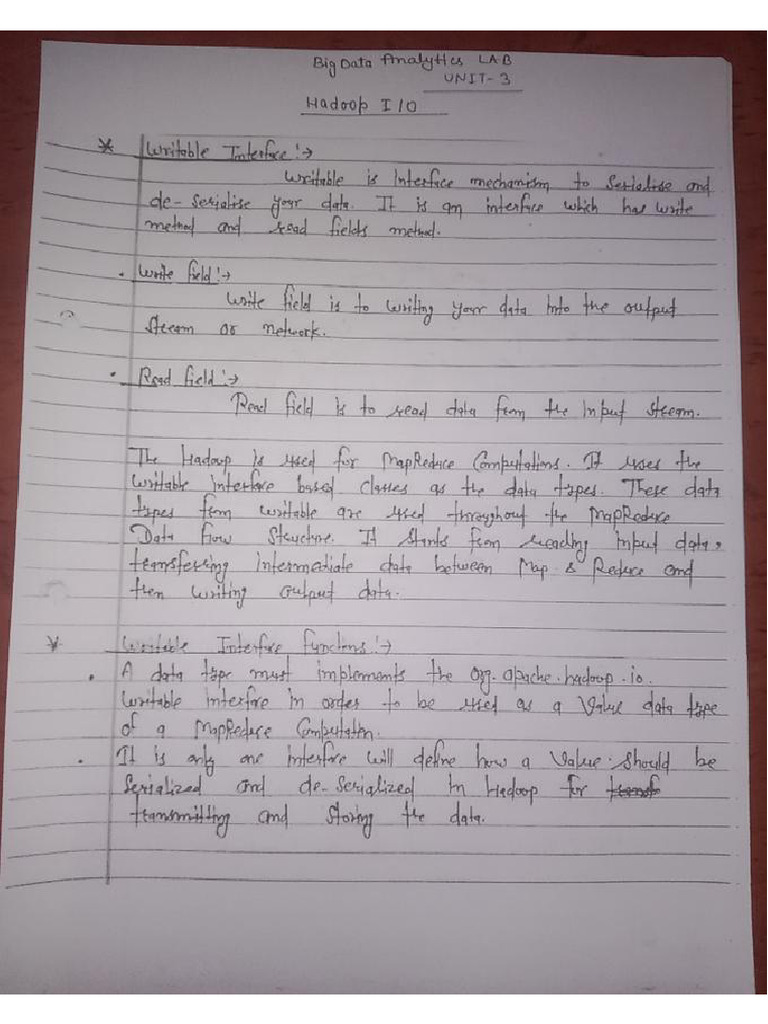 Big Data Analytics LAB
UNIT-3
Hadoop I/O
* Writable Interface :→
Writable is Interface mechanism to Serialise and
de-Serialise your data. It is an interface which has write
method and read fields method.
. Write field :→
Write field is to writing your data into the output
steam or network.
. Read field :→
Read field is to read data from the input steam.
The Hadoop is used for MapReduce Computations. It uses the
writable interface based classes as the data types. These data
types from writable are used throughout the MapReduce
Data flow Structure. It starts from reading input data,
transferring intermediate data between Map & Reduce and
then writing output data.
* Writable Interface functions :→
. A data type must implements the org.apache.hadoop.io.
Writable interface in order to be used as a Value data type
of a MapReduce Computation.
. It is only one interface will define how a value should be
Serialized and de-Serialized in Hadoop for
transmitting and storing the data.